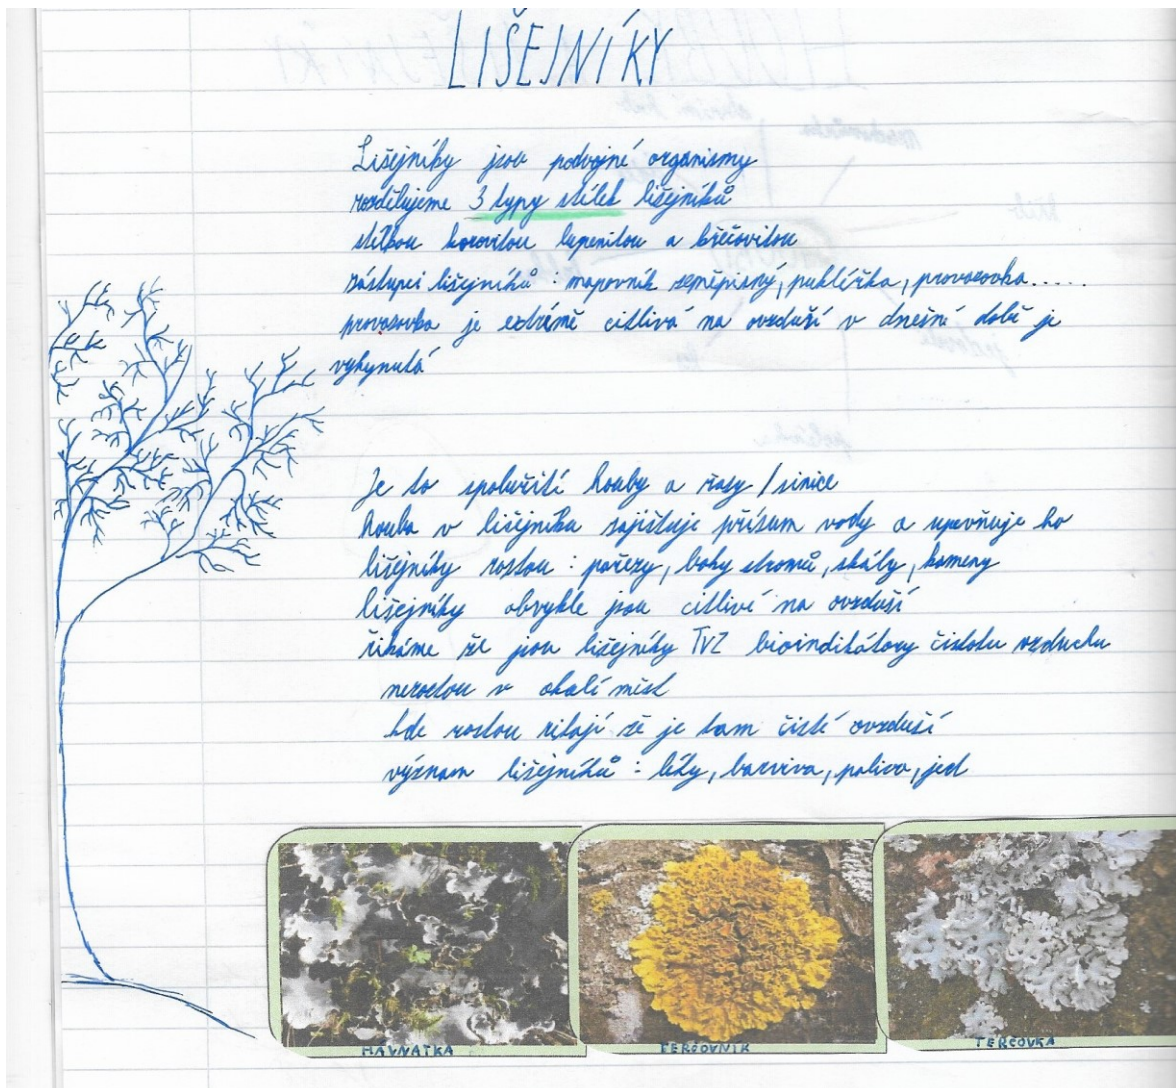 LIŠEJNÍKY
Lišejníky jsou podvojné organismy
rozdělujeme 3 typy stílek lišejníků
stélkou korovitou lupenitou a keříčovitou
zástupci lišejníků : mapovník zeměpisný, pukléřka, provazovka.....
provazovka je extrémě citlivá na ovzduší v dnešní době je
vyhynulá
Je to spolužití houby a řasy / sinice
houba v lišejníku zajišťuje přísun vody a upevňuje ho
lišejníky rostou : pařezy, boky stromů, skály, kameny
lišejníky obvykle jsou citliví na ovzduší
říkáme že jsou lišejníky TVZ bioindikátory čistotu vzduchu
nerostou v okolí měst
kde rostou říkají že je tam čisté ovzduší
význam lišejníků : léky, barviva, palivo, jed
HÁVNATKA
TERČOVNÍK
TERČOVKA